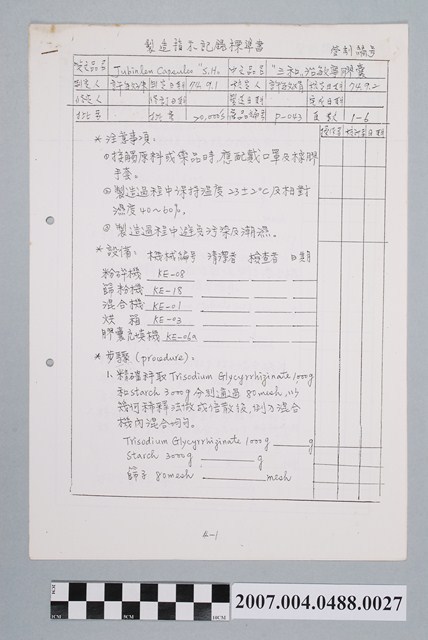 製造諸表記錄標準書
管制編号
英文品名 Tubinlon Capsules "S.H. 中文品名 "三和"治敏寧膠囊
74.9.1 74.9.2
批号 批量 20,000's 產品編号 P-043 頁次 1-6
操作者 檢查者 日期
*注意事項:
①接觸原料或藥品時,應配戴口罩及橡膠
手套。
②製造過程中保持溫度23±2°C及相對
濕度40~60%。
③製造過程中避免污染及潮濕。
*設備: 機械編號 清潔者 檢查者 日期
粉碎機 KE-08
篩粉機 KE-18
混合機 KE-01
烘 箱 KE-03
膠囊充填機 KE-06a
*步驟(procedure):
1.精確秤取Trisodium Glycyrrhizinate 1,000g
和starch 3000g分別通過80mesh,以
幾何稀釋法做成倍散後,倒入混合
機內混合均勻。
Trisodium Glycyrrhizinate 1000g g
Starch 3000g g
篩子 80mesh mesh
4-1
1CM
CM
2007.004.0488.0027